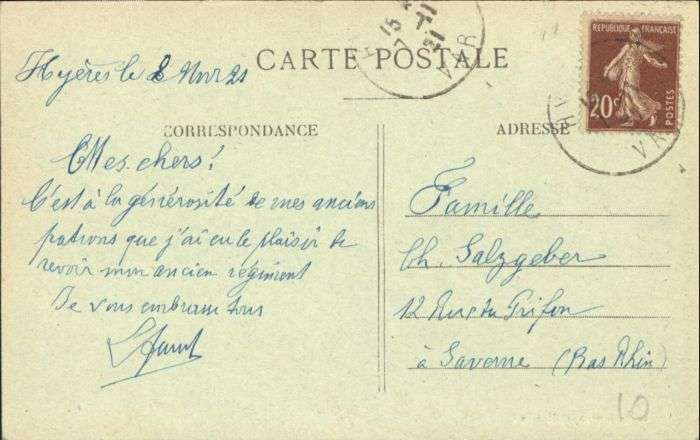 CARTE POSTALE
Hyères le 8 Nov 21
CORRESPONDANCE
ADRESSE
RÉPUBLIQUE FRANÇAISE
20c
POSTES
15
7-11
21
VAR
VAR
Mes chers!
C'est à la générosité de mes anciens
patrons que j'ai eu le plaisir de
revoir mon ancien régiment
Je vous embrasse tous
Famille
Ch. Salzgeber
12 Rue du Grifon
à Saverne (Bas Rhin)
10